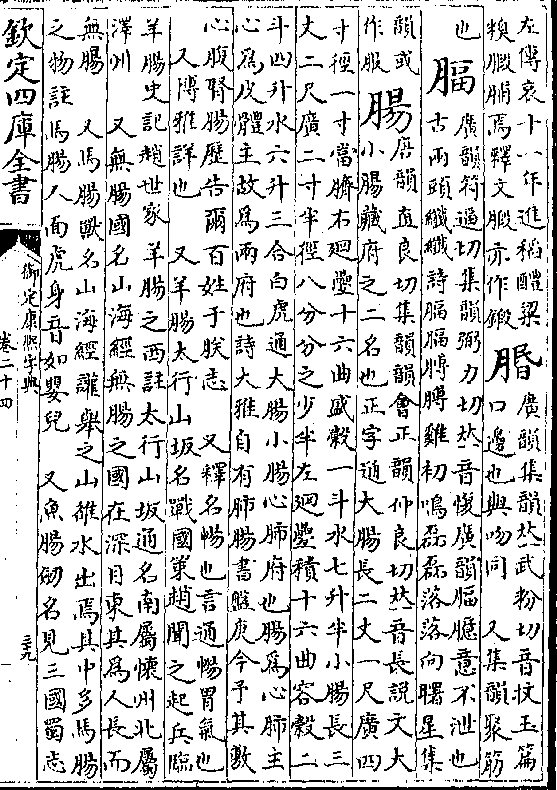 左傳哀十一年進稻醴粱
糗腶脯焉釋文腶亦作鍛
䐇
廣韻集韻𠀤武粉切音抆玉篇
口邊也與吻同 又集韻聚筋
也
腷
廣韻符逼切集韻弼力切𠀤音愎廣韻腷臆意不泄也
古兩頭纖纖詩腷腷膊膊雞初鳴磊磊落落向曙星集
韻或
作
腸
唐韻直良切集韻韻會正韻仲良切𠀤音長説文大
小腸也正字通大腸長二丈一尺廣四
寸徑一寸當臍右廻疊十六曲盛穀一斗水七升半小腸長三
丈二尺廣二寸半徑八分分之少半左廻疊積十六曲容穀二
斗四升水六升三合白虎通大腸小腸心肺府也腸為心肺主
心為皮體主故為兩府也詩大雅自有肺腸書盤庚今予其敷
心腹腎腸歷告爾百姓于朕志 又釋名暢也言通暢胃氣也
又博雅詳也 又羊腸太行山坂名戰國策趙聞之起兵臨
羊腸史記趙世家羊腸之西註太行山坂通名南屬懷州北屬
澤州 又無腸國名山海經無腸之國在深目東其為人長而
無腸 又馬腸獸名山海經讙舉之山雒水出焉其中多馬腸
之物註馬腸人面虎身音如嬰兒 又魚腸劒名見三國蜀志
欽定四庫全書
御定康熙字典
卷二十四